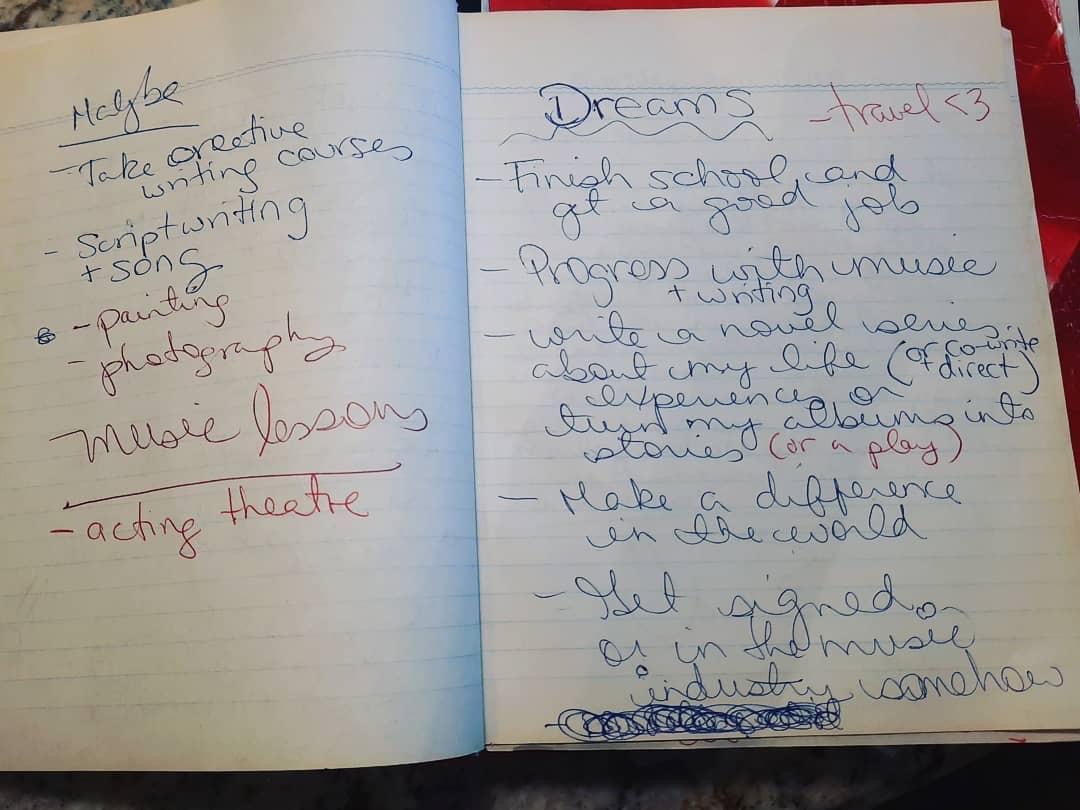 Maybe
- Take creative
writing courses
- Scriptwriting
+ song
- painting
- photography
music lessons
- acting theatre
Dreams
- travel <3
- Finish school and
get a good job
- Progress with music
+ writing
- write a novel series
about my life (or co-write
+ direct)
experiences or
turn my albums into
stories (or a play)
- Make a difference
in the world
- Get signed
or in the music
industry somehow